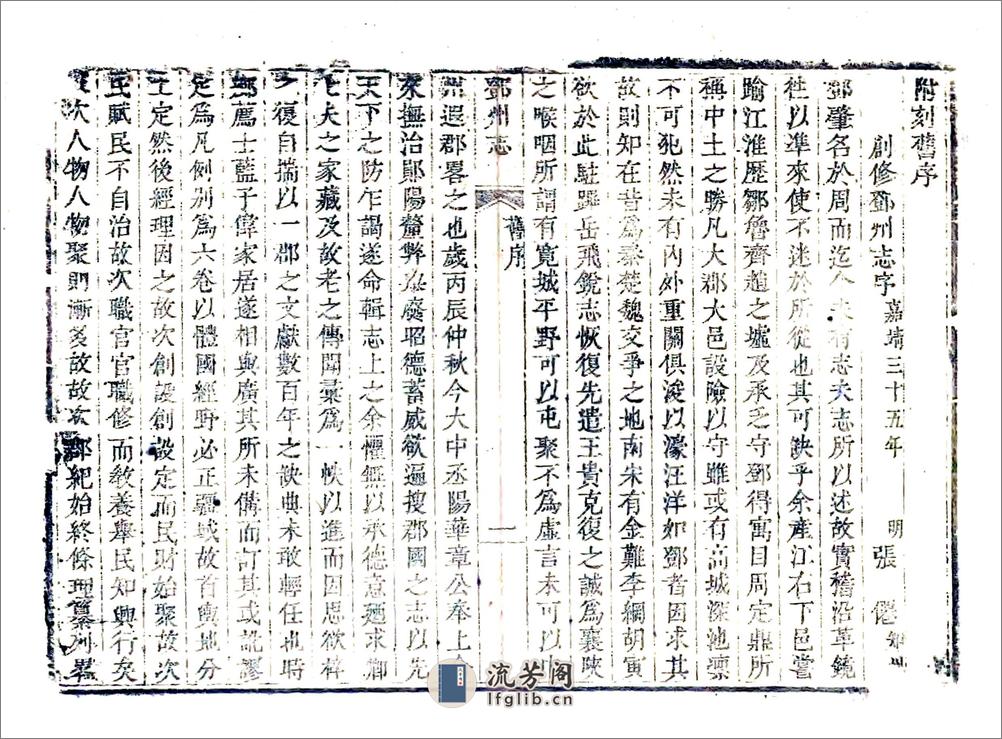 附刻舊序
創修鄧州志序 嘉靖三十五年 明 張僊 知州
鄧肇名於周而迄今未有志夫志所以述故實稽沿革鏡
往以準來使不迷於所從也其可缺乎余產江右下邑嘗
踰江淮歷鄒魯齊趙之墟及承乏守鄧得寓目周定鼎所
稱中土之勝凡大郡大邑設險以守雖或有高城深池凜
不可犯然未有內外重關俱浚以濠汪洋如鄧者因求其
故則知在昔爲秦楚魏交爭之地南宋有金難李綱胡寅
欲於此駐蹕岳飛銳志恢復先遣王貴克復之誠爲襄陝
之喉咽所謂有寬城平野可以屯聚不爲虛言未可以
鄧州志
舊序
一
州遐郡畧之也歲丙辰仲秋今大中丞陽華章公奉上命
來撫治鄖陽釐弊興廢昭德蓄威欲遍搜郡國之志以先
天下之防乍謁遂命輯志上之余懼無以承德意廼求鄉
士大夫之家藏及故老之傳聞彙爲一帙以進而因思欲梓
之復自揣以一郡之文獻數百年之缺典未敢輕任也時
鄉薦士藍子偉家居遂相與廣其所未備而訂其或訛謬
定爲凡例別爲六卷以體國經野必正疆域故首輿地分
土定然後經理因之故次創設創設定而民財始聚故次
民賦民不自治故次職官官職修而敎養舉民知興行矣
次人物人物聚則漸多故故次郡紀始終條理纂列畢